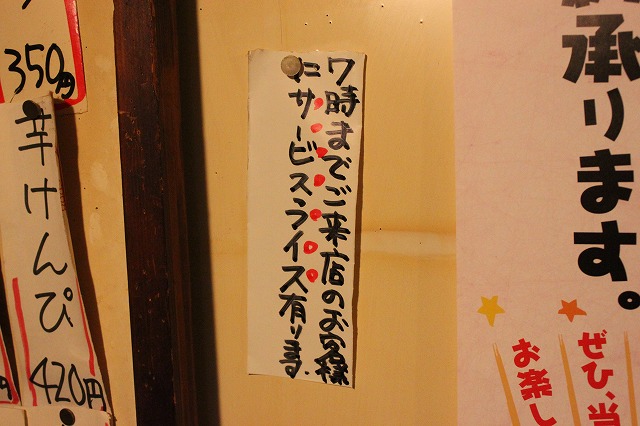 承ります。
ぜひ、当
お楽し
7時までご来店のお客様
にサービスライス有ります.
350円
芋けんぴ
420円